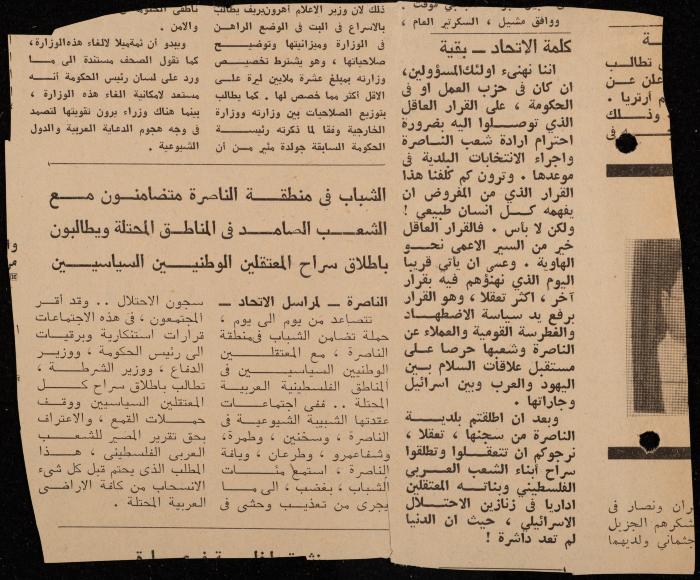 ووافق مشيل ، السكرتير العام ،
كلمة الاتحاد ــ بقية
اننا نهنىء اولئك المسؤولين،
ان كان في حزب العمل او في
الحكومة ، على القرار العاقل
الذي توصلوا اليه بضرورة
احترام ارادة شعب الناصرة
واجراء الانتخابات البلدية في
موعدها . وترون كم كلفنا هذا
القرار الذي من المفروض ان
يفهمه كل انسان طبيعي !
ولكن لا بأس . فالقرار العاقل
خير من السير الاعمى نحو
الهاوية . وعسى ان يأتي قريبا
اليوم الذي نهنؤهم فيه بقرار
آخر ، اكثر تعقلا ، وهو القرار
برفع يد سياسة الاضطهاد
والغطرسة القومية والعملاء عن
الناصرة وشعبها حرصا على
مستقبل علاقات السلام بين
اليهود والعرب وبين اسرائيل
وجاراتها .
وبعد ان اطلقتم بلدية
الناصرة من سجنها ، تعقلا ،
نرجوكم ان تتعقلوا وتطلقوا
سراح أبناء الشعب العربي
الفلسطيني وبناته المعتقلين
اداريا في زنازين الاحتلال
الاسرائيلي ، حيث ان الدنيا
لم تعد داشرة !
ذلك لان وزير الاعلام أهرون يريف يطالب
بالاسراع في البت في الوضع الراهن
في الوزارة وميزانيتها وتوضيح
صلاحياتها ، وهو يشترط تخصيص
وزارته بمبلغ عشرة ملايين ليرة على
الاقل أكثر مما خصص لها . كما يطالب
بتوزيع الصلاحيات بين وزارته ووزارة
الخارجية وفقا لما ذكرته رئيسة
الحكومة السابقة جولدة مئير من أن
والامن .
ويبدو أن ثمة ميلا لالغاء هذه الوزارة،
كما تقول الصحف مستندة الى ما
ورد على لسان رئيس الحكومة أنه
مستعد لامكانية الغاء هذه الوزارة ،
بينما هناك وزراء يرون تقويتها لتصمد
في وجه هجوم الدعاية العربية والدول
الشيوعية .
الشباب في منطقة الناصرة متضامنون مع
الشعب الصامد في المناطق المحتلة ويطالبون
باطلاق سراح المعتقلين الوطنيين السياسيين
الناصرة ــ لمراسل الاتحاد ــ
تتصاعد من يوم الى يوم ،
حملة تضامن الشباب في منطقة
الناصرة ، مع المعتقلين
الوطنيين السياسيين في
المناطق الفلسطينية العربية
المحتلة .. ففي اجتماعات
عقدتها الشبيبة الشيوعية في
الناصرة ، وسخنين ، وطمرة،
وشفاعمرو ، وطرعان ، ويافة
الناصرة ، استمع مئات
الشباب ، بغضب ، الى ما
يجري من تعذيب وحشي في
سجون الاحتلال .. وقد أقر
المجتمعون ، في هذه الاجتماعات
قرارات استنكارية وبرقيات
الى رئيس الحكومة ، ووزير
الدفاع ، ووزير الشرطة ،
تطالب باطلاق سراح كل
المعتقلين السياسيين ووقف
حملات القمع ، والاعتراف
بحق تقرير المصير للشعب
العربي الفلسطيني ، هذا
المطلب الذي يحتم قبل كل شيء
الانسحاب من كافة الاراضي
العربية المحتلة .
تطالب
علن عن
م أرتريا .
وذلك
ران ونصار في
شكرهم الجزيل
جثماني ولديهما